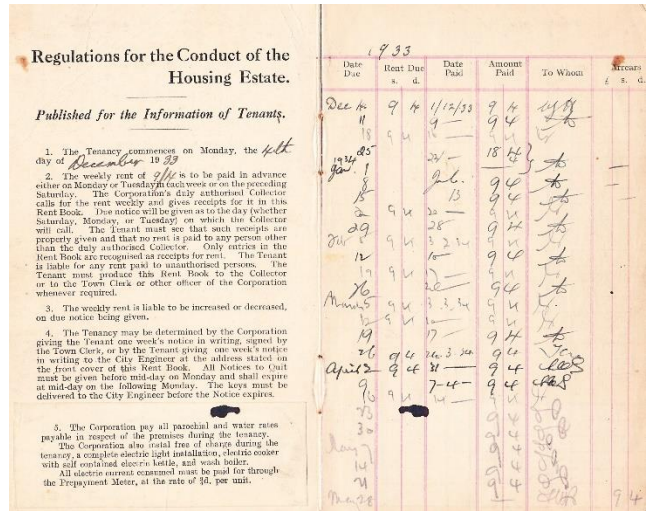 Regulations for the Conduct of the
Housing Estate.
Published for the Information of Tenants.
1. The Tenancy commences on Monday, the 4th
day of December 1933
2. The weekly rent of 9/4 is to be paid in advance
either on Monday or Tuesday in each week or on the preceding
Saturday. The Corporation's duly authorised Collector
calls for the rent weekly and gives receipts for it in this
Rent Book. Due notice will be given as to the day (whether
Saturday, Monday, or Tuesday) on which the Collector
will call. The Tenant must see that such receipts are
properly given and that no rent is paid to any person other
than the duly authorised Collector. Only entries in the
Rent Book are recognised as receipts for rent. The Tenant
is liable for any rent paid to unauthorised persons. The
Tenant must produce this Rent Book to the Collector
or to the Town Clerk or other officer of the Corporation
whenever required.
3. The weekly rent is liable to be increased or decreased,
on due notice being given.
4. The Tenancy may be determined by the Corporation
giving the Tenant one week's notice in writing, signed by
the Town Clerk, or by the Tenant giving one week's notice
in writing to the City Engineer at the address stated on
the front cover of this Rent Book. All Notices to Quit
must be given before mid-day on Monday and shall expire
at mid-day on the following Monday. The keys must be
delivered to the City Engineer before the Notice expires.
5. The Corporation pay all parochial and water rates
payable in respect of the premises during the tenancy.
The Corporation also instal free of charge during the
tenancy, a complete electric light installation, electric cooker
with self contained electric kettle, and wash boiler.
All electric current consumed must be paid for through
the Prepayment Meter, at the rate of ¾d. per unit.
1933
Date Due Rent Due Date Paid Amount Paid To Whom Arrears
s. d. £ s. d.
Dec 4 9 4 1/12/33 9 4
11 9 — 9 4
18 9 4
25 18 4
1934
Jan. 1
8 9 4
15 13 9 4
9 4 20 —
29 28 9 4
9 4 3 2 34
12 9 4
19 9 4
26 9 4
March 5 9 4 3.3.34 9 4
9 4
19 17 — 9 4
26 9 4 24.3.34 9 4
April 2 9 4 31 — 9 4
9 7-4- 9 4
16 9 4 14 — 9 4
23 9 4
30 9 4
May 7 9 4
14 9 4
21 9 4
May 28 9 4